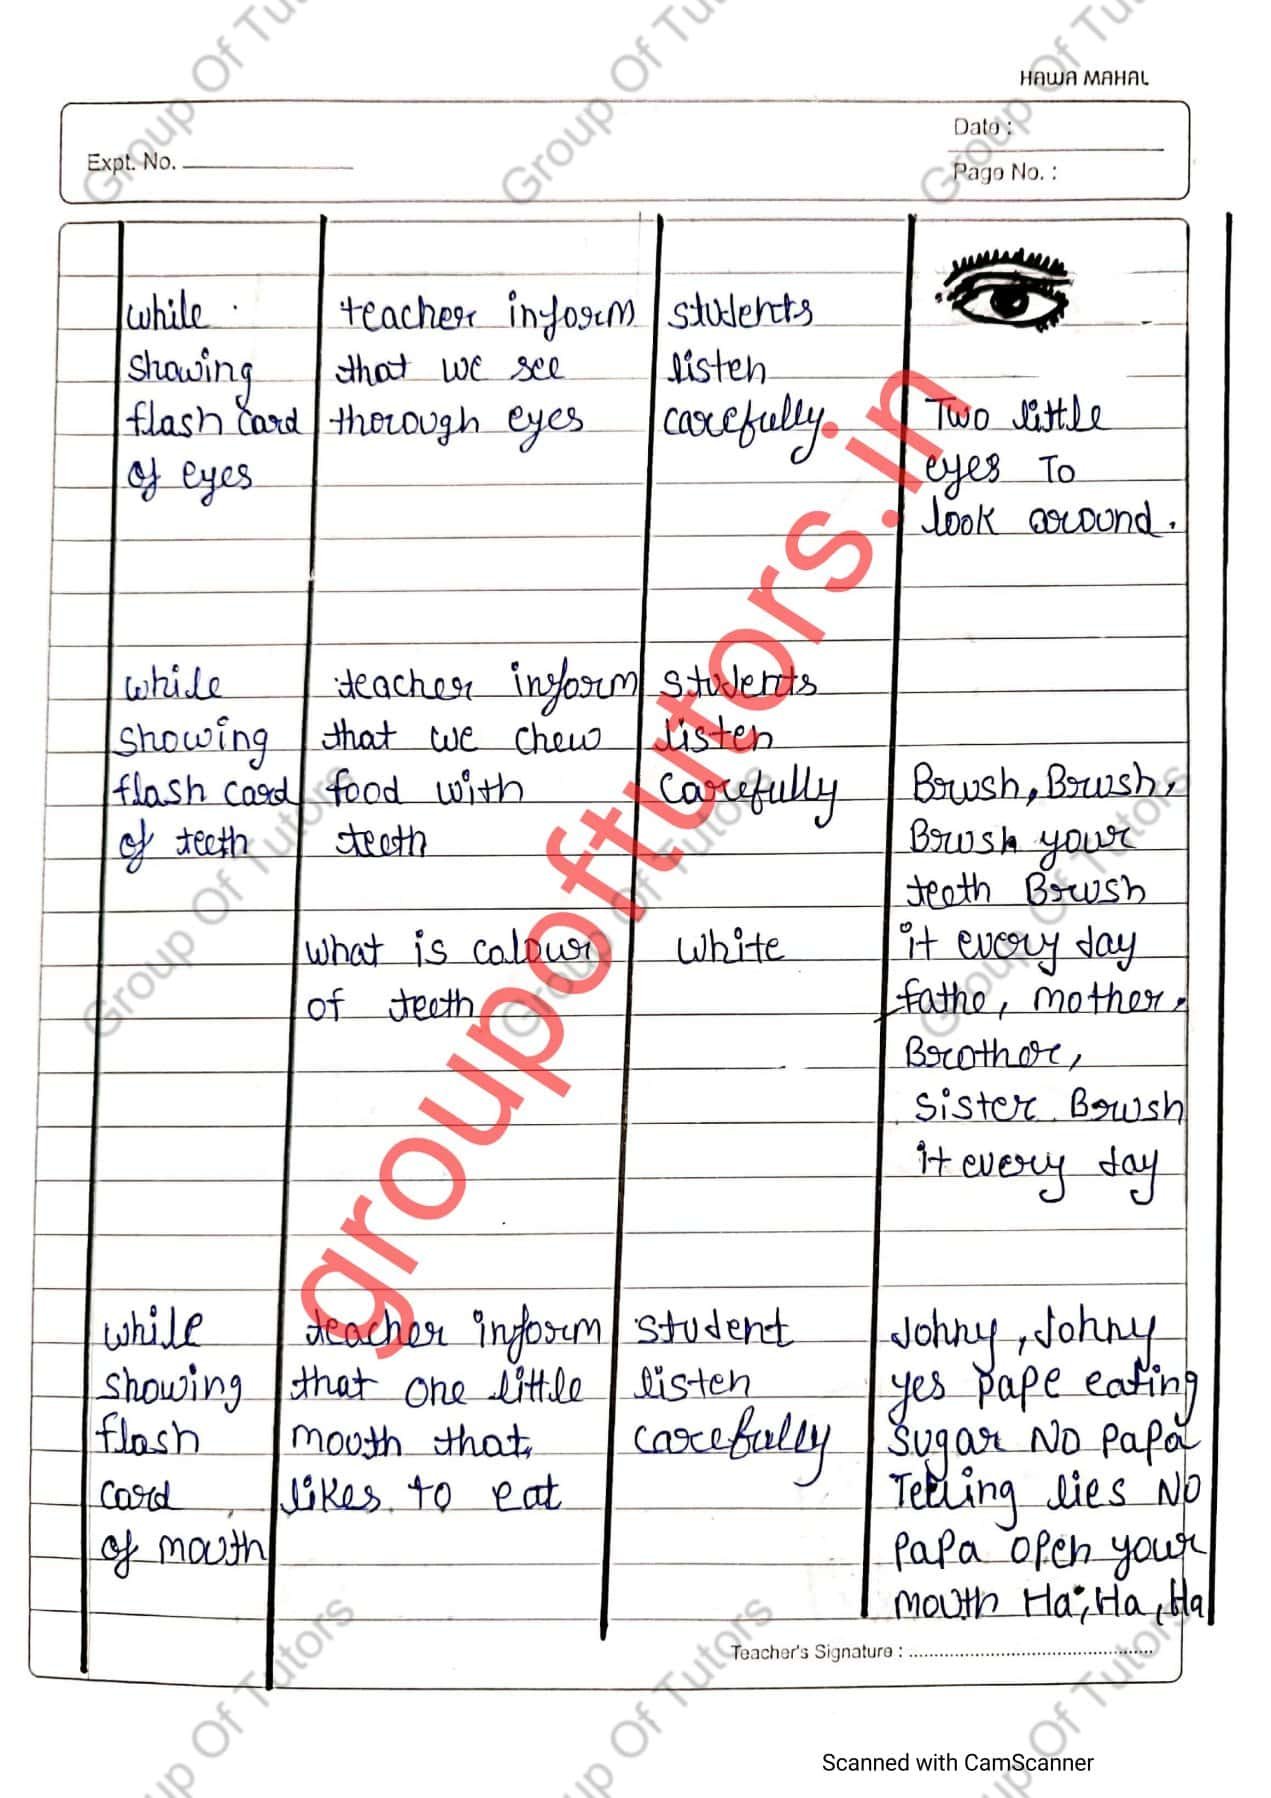 HAWA MAHAL
Expt. No.
Date :
Page No. :
while
showing
flash card
of eyes
teacher inform
that we see
thorough eyes
students
listen
carefully
Two little
eyes To
look around.
while
showing
flash card
of teeth
teacher inform
that we chew
food with
teeth
students
listen
carefully
what is colour
of teeth
white
Brush, Brush,
Brush your
teeth Brush
it every day
fathe, mother,
Brother,
Sister Brush
it every day
while
showing
flash
card
of mouth
teacher inform
that one little
mouth that
likes to eat
student
listen
carefully
Johny, Johny
yes pape eating
sugar NO papa
Telling lies NO
papa open your
mouth Ha, Ha, Ha
Teacher's Signature :
groupoftutors.in
Group Of Tutors
Scanned with CamScanner